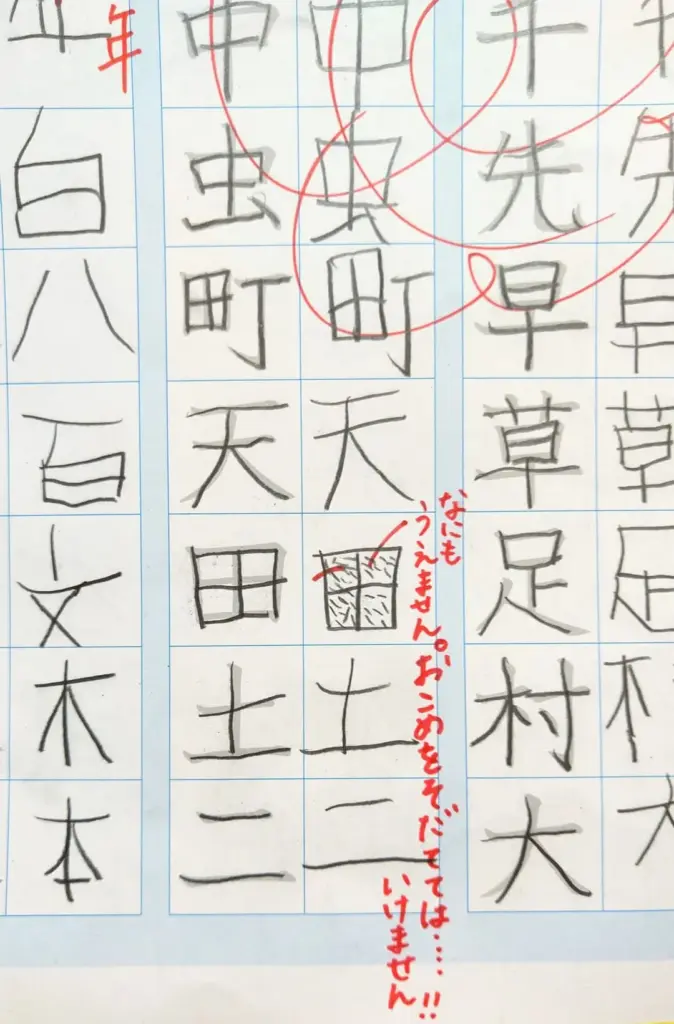 千先早草足村大
なにも
うえません。おこめをそだてては……!!
いけません
中虫町天田土二
中虫町天田土二
年
年白八百文木本